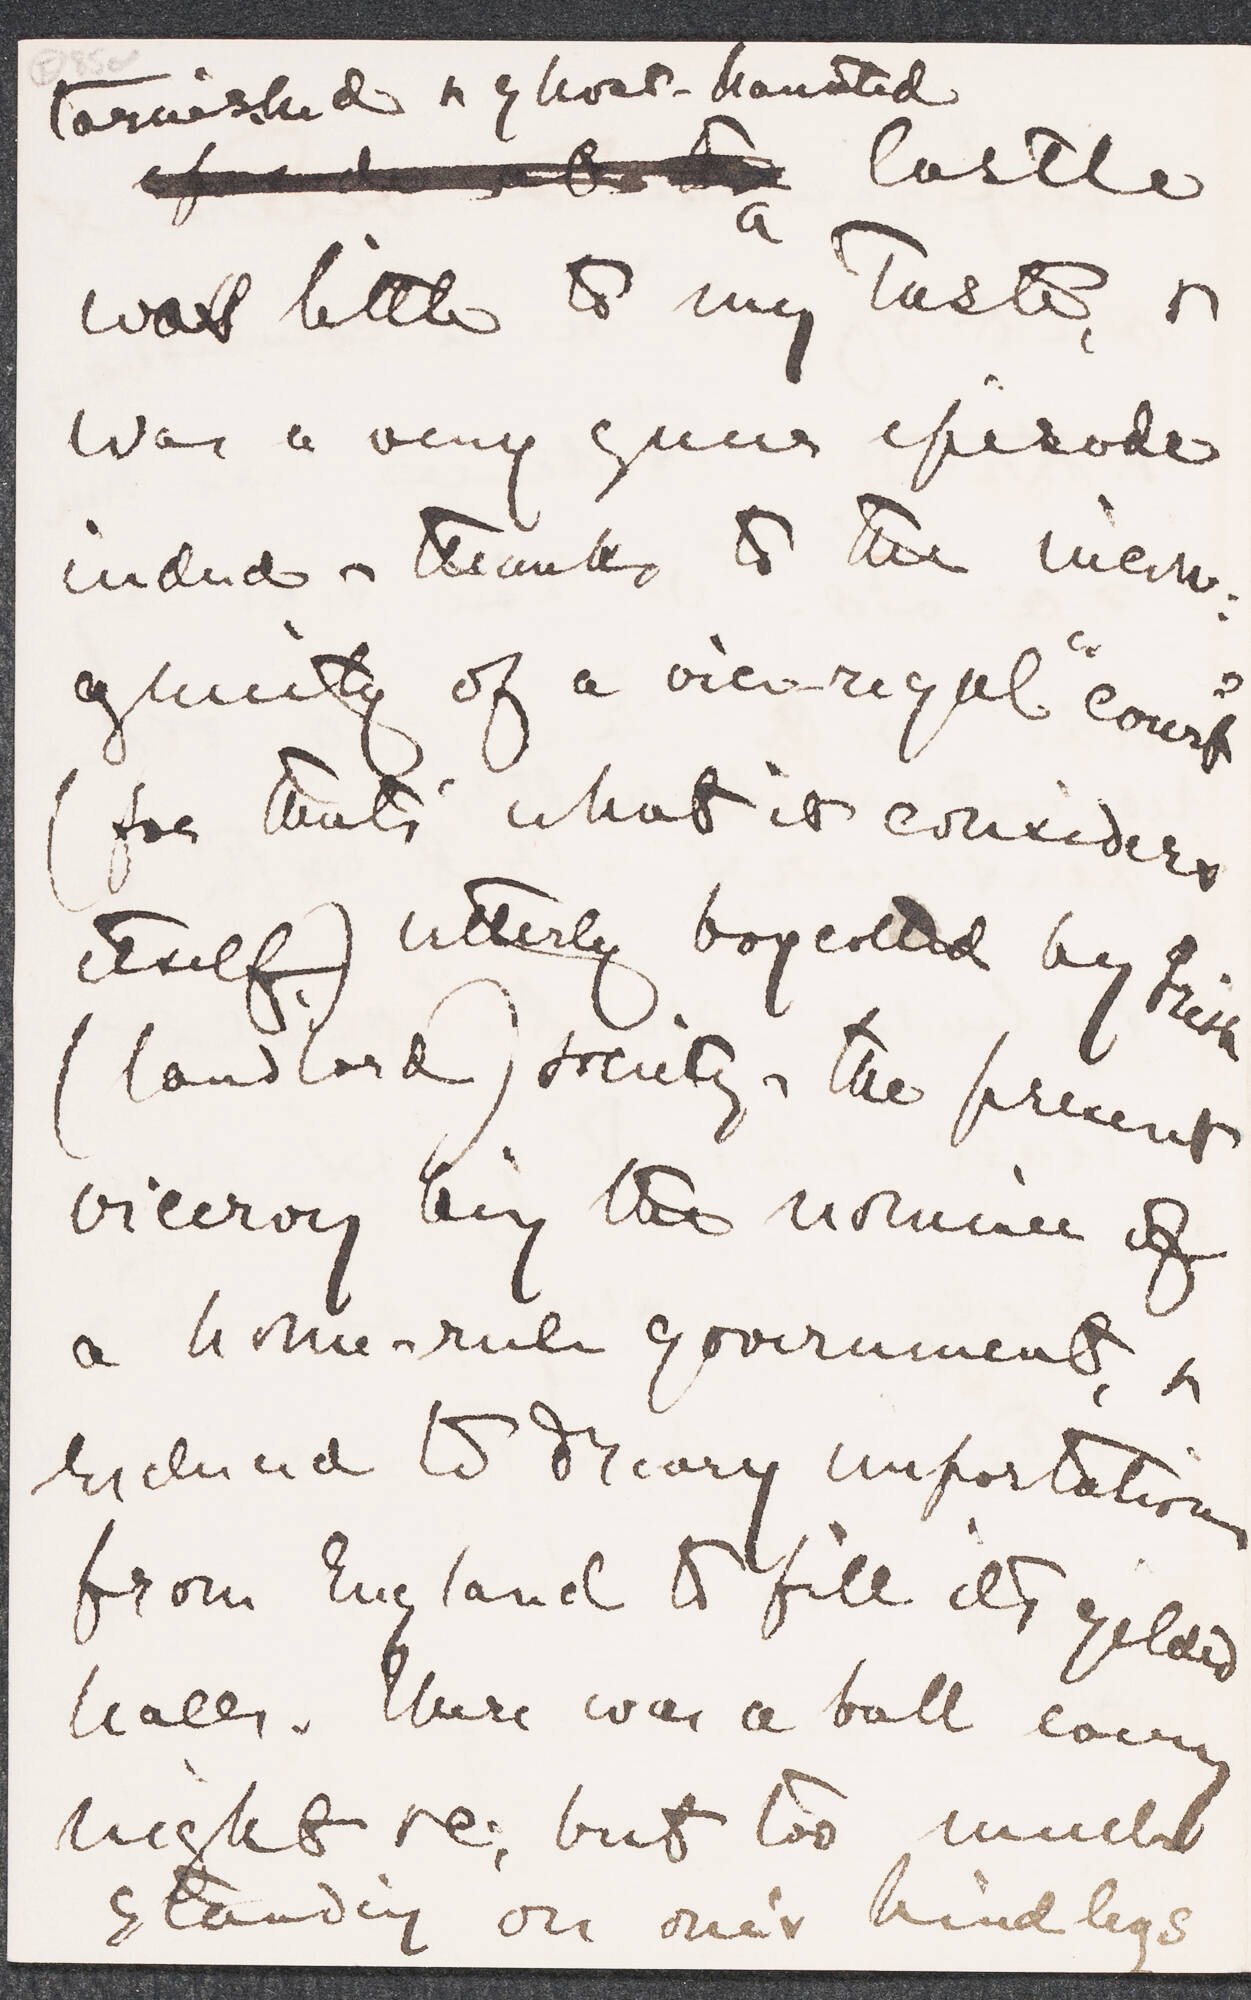 tarnished & ghost-haunted
Castle
a
was little to my taste, &
was a very queer episode
indeed - thanks to the incon:
gruity of a vice-regal "court"
(for that's what it considers
itself,) utterly boycotted by Irish
(landlord) society - the present
viceroy being the nominee of
a home-rule government, &
reduced to dreary importations
from England to fill its gilded
halls. There was a ball every
night &c, but too much
standing on one's hind legs